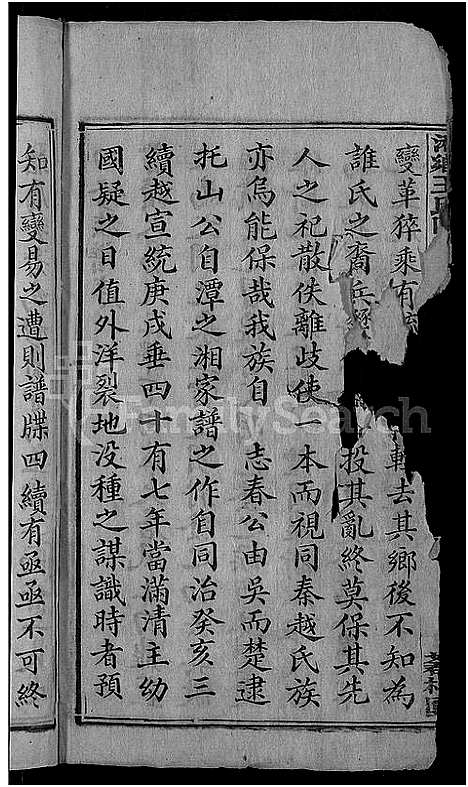 變革猝乘有 輕去其鄉後不知為
誰氏之裔兵 投其亂終莫保其先
人之祀散佚離歧使一本而視同秦越氏族
亦烏能保哉我族自 志春公由吳而楚逮
托山公自潭之湘家譜之作自同治癸亥三
續越宣統庚戌垂四十有七年當滿清主幼
國疑之日值外洋裂地没種之謀識時者預
知有變易之遭則譜牒四續有亟亟不可終
FamilySearch